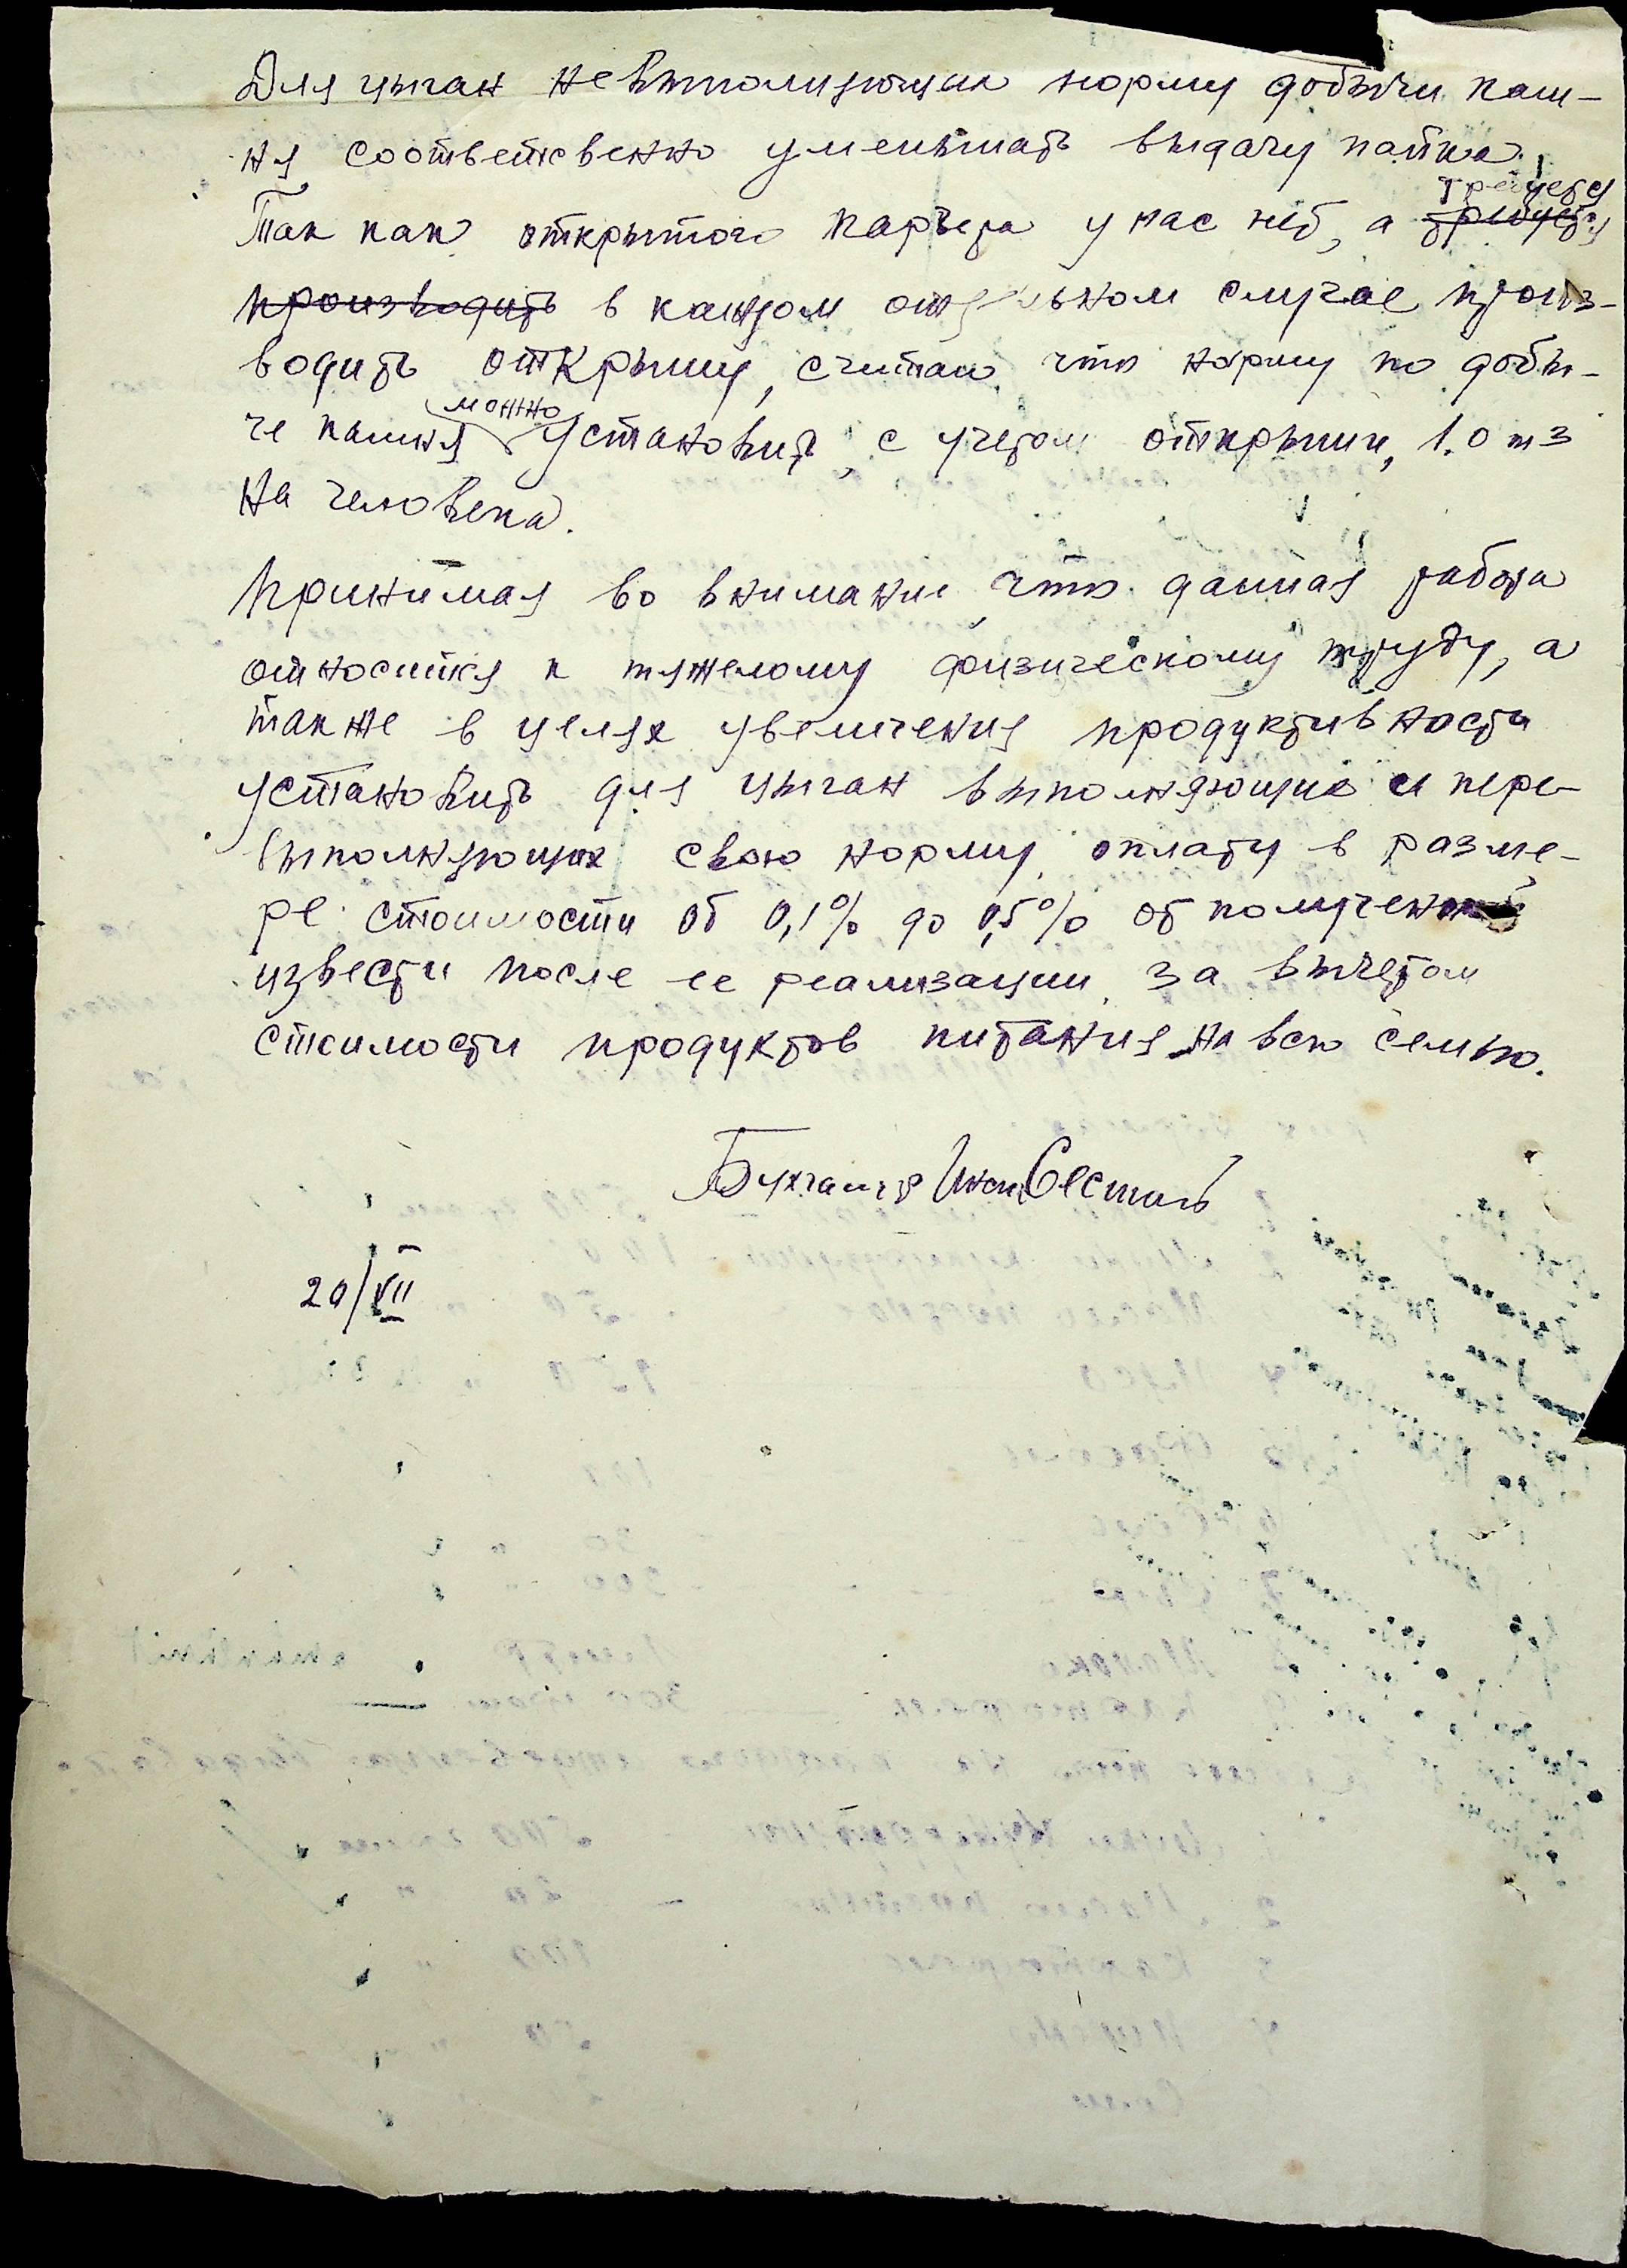 Для цыган невыполняющих норму добычи кам-
ня соответсвенно уменьшать выдачу пайка.
Так как открытого карьера у нас нет, а требуется требуется
производить в каждом отдельном случае произ-
водить открышу, считаю что норму по добы-
че камня можно установить, с учетом открыши, 1.0 m3
на человека.
Принимая во внимание, что данная работа
относится к тяжелому физическому труду, а
также в целях увеличения продуктивности
установить для цыган выполняющие и пере-
выполняющих свою норму оплату в разме-
ре стоимости от 0,1% до 0,5% от полученной
извести после ее реализации за вычетом
стоимости продуктов питания на всю семью.
Бухгалтер
20/VII